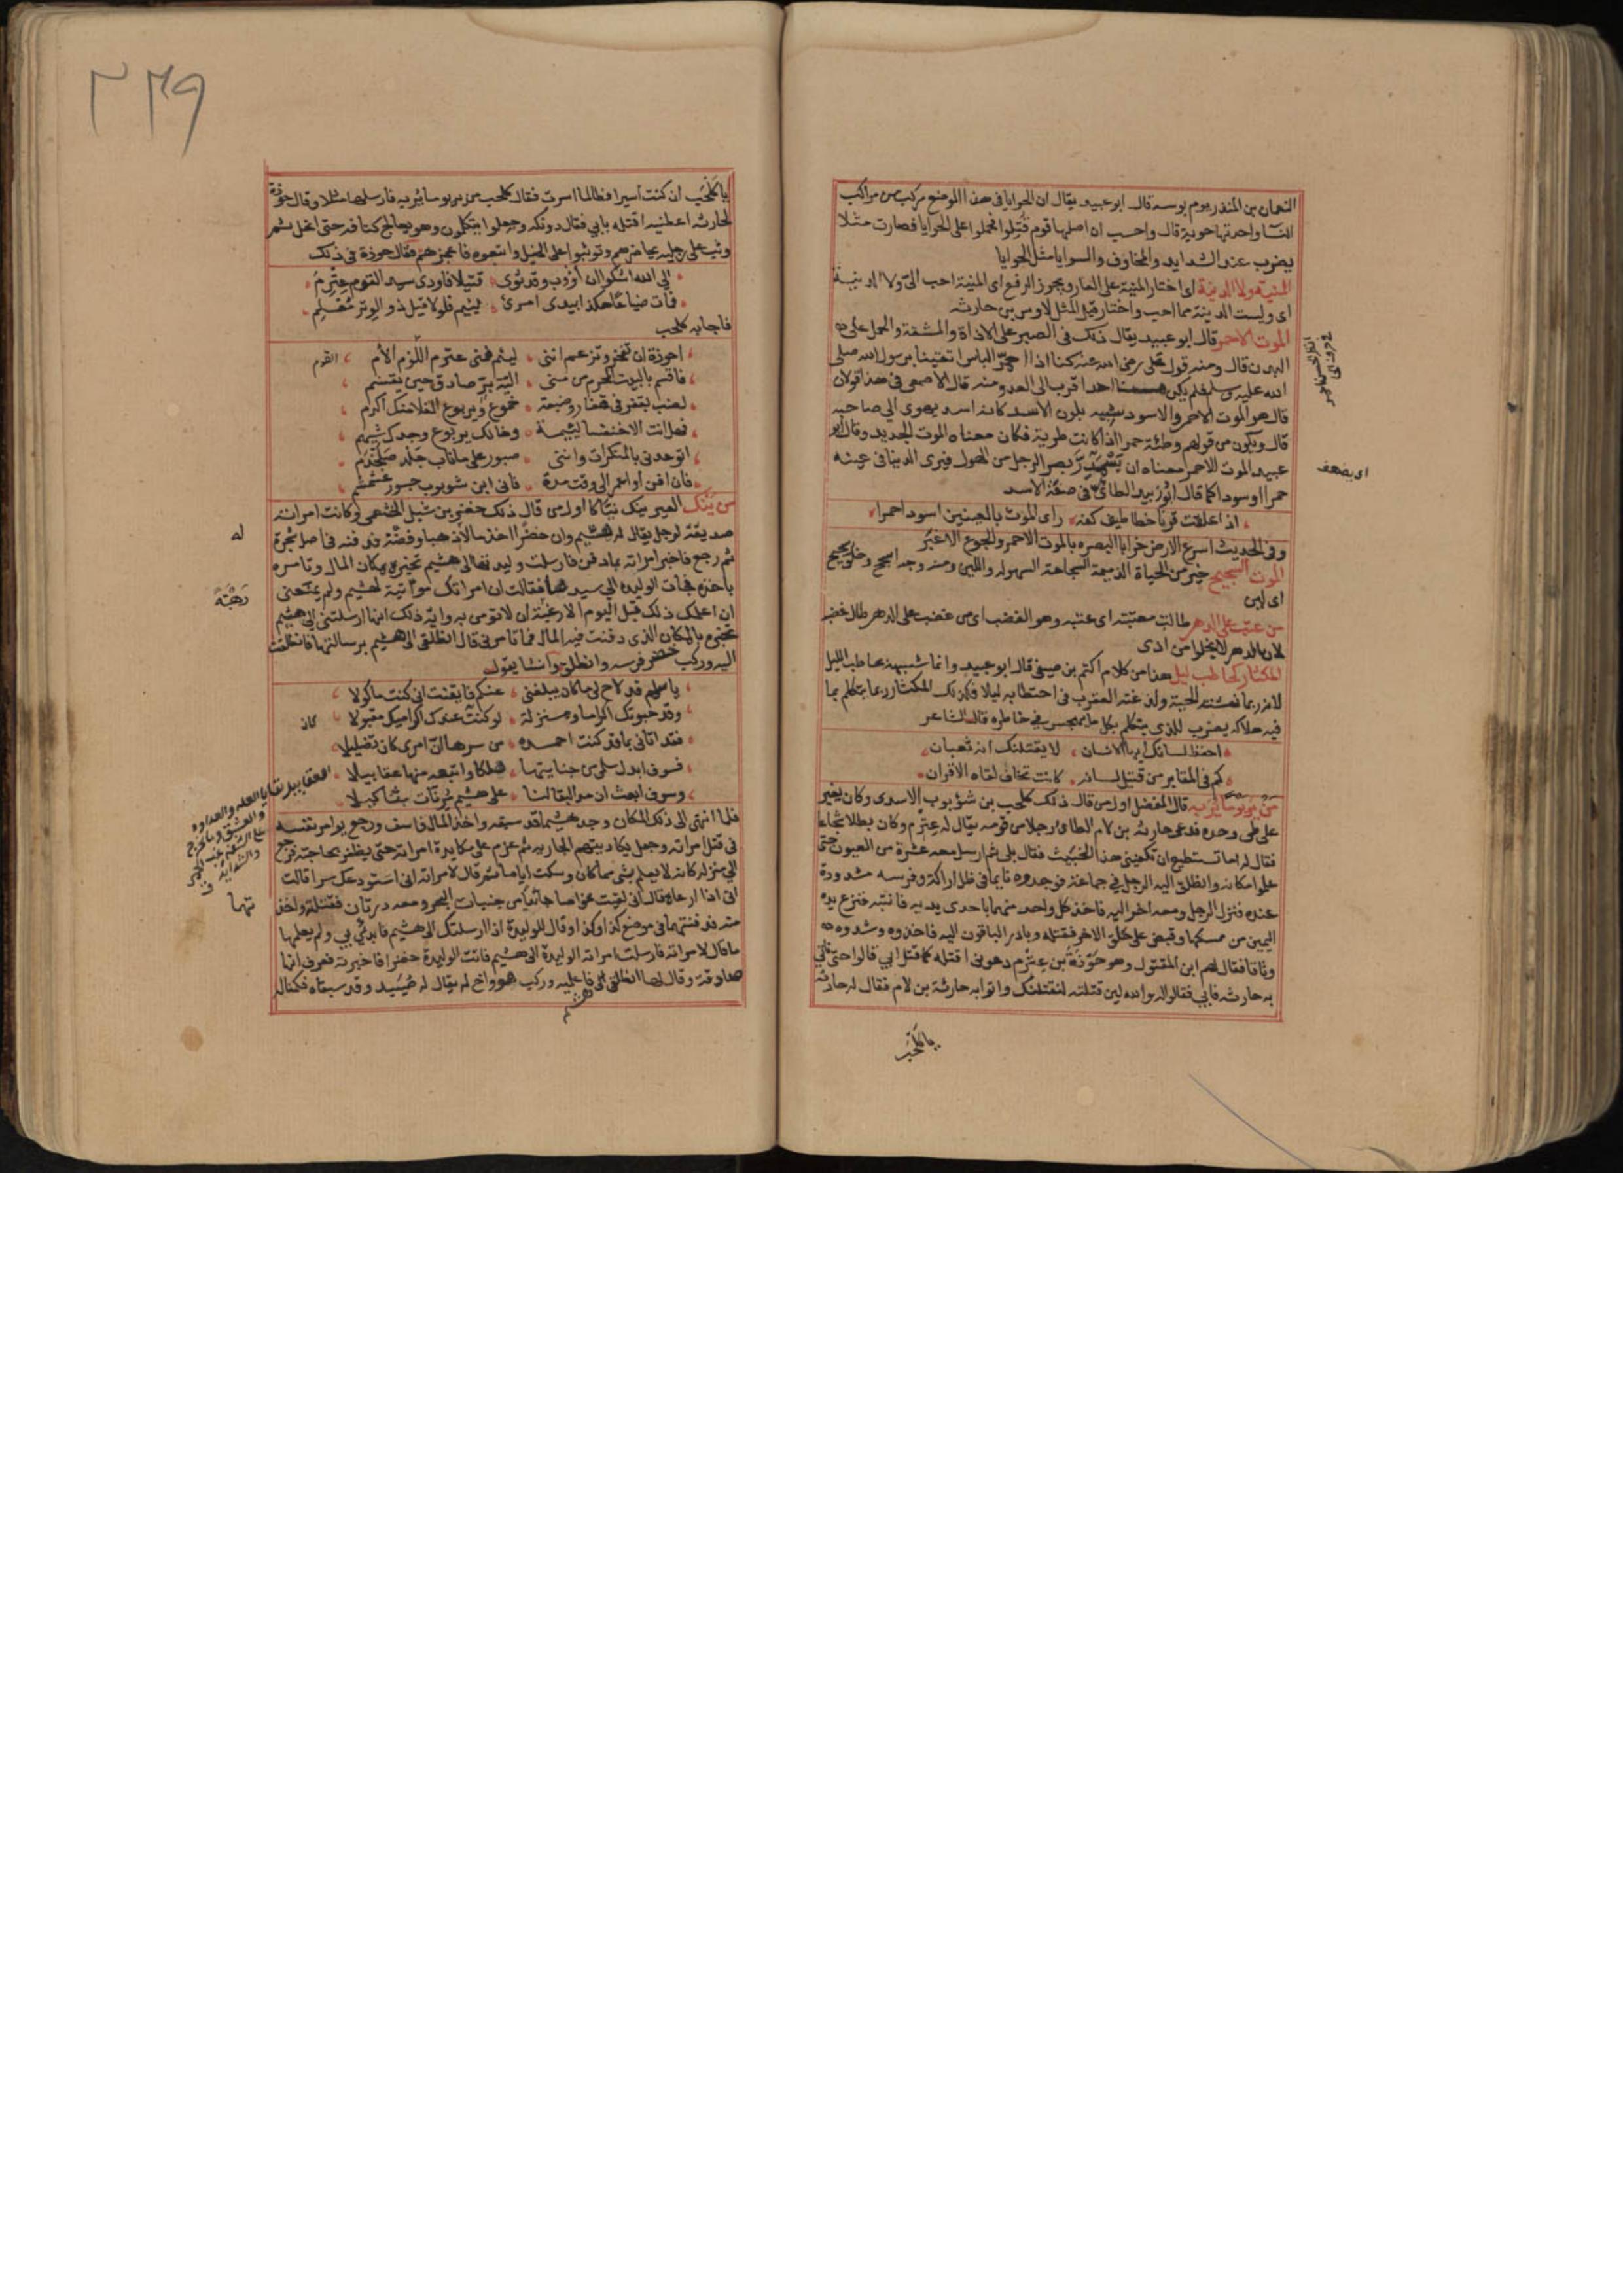 النعمان بن المنذر يوم بوسه قال ابو عبيد يقال ان الحوايا في هذا الموضع مركب من مراكب
النسا واحدتها حوية قال واحسب ان اصلها قوم قتلوا فحملوا على الحوايا فصارت مثلا
يضرب عند الشدايد والمخاوف والسوايا مثل الحوايا
المنية ولا الدنية اى اختار المنية على العار ويجوز الرفع اى المنية احب الى ولا الدنية
اى وليست الدنية مما احب واختار قيل المثل لاوس بن حارثه
الموت الاحمر قال ابو عبيد يقال ذلك فى الصبر على الاذاة والمشقة والحمل على
البدن قال ومنه قول على رضى الله عنه كنا اذا احمر الباس اتقينا برسول الله صلى
الله عليه وسلم فلم يكن منا احد اقرب الى العدو منه قال الاصمعى فى هذا قولان
قال هو الموت الاحمر والاسود شبه بلون الاسد كانه اسد يهوى الى صاحبه
قال ويكون من قولهم وطئة حمرا اذا كانت طرية فكان معناه الموت الجديد وقال ابو
عبيد الموت الاحمر معناه ان يسمدر بصر الرجل من الهول فيرى الدنيا فى عينه
حمرا او سودا كما قال ابو زبيد الطائى فى صفة الاسد
اذا علقت قرنا خطاطيف كفه راى الموت بالعينين اسود احمرا
وفى الحديث اسرع الارض خرابا البصره بالموت الاحمر والجوع الاغبر
الموت السجيح خير من الحياة الذميمة السجاحة السهوله واللين ومنه وجه اسجح وخلق سجيح
اى لين
من عتب على الدهر طالت معتبته اى عتبه وهو الغضب اى من غضب على الدهر طال غضبه
لان الدهر لا يخلوا من اذى
المكثار كحاطب ليل هذا من كلام اكثم بن صيفى قال ابو عبيد وانما شبهه بحاطب الليل
لانه ربما نهشته الحية ولدغته العقرب فى احتطابه ليلا فكذلك المكثار ربما يتكلم بما
فيه هلاكه يضرب للذى يتكلم بكل ما يهجس فى خاطره قال الشاعر
احفظ لسانك ايها الانسان لا يقتلنك انه ثعبان
كم فى المقابر من قتيل لسانه كانت تخاف لقاه الاقران
من ير يوما ير به قال المفضل اول من قال ذلك كلحب بن شؤبوب الاسدى وكان يغير
على طى وحده فدعى حارثه بن لام الطائى رجلا من قومه يقال له عترم وكان بطلا شجاعا
فقال له اما تستطيع ان تكفينى هذا الخبيث فقال بلى ثم ارسل معه عشرة من العيون حتى
علموا مكانه وانطلق اليه الرجل فى جماعة فوجدوه نايما فى ظل اراكة وفرسه مشدودة
عنده فنزل الرجل ومعه اخر اليه فاخذ كل واحد منهما باحدى يديه فانتبه فنزع يده
اليمين من ممسكها وقبض على حلق الاخر فقتله وبادر الباقون اليه فاخذوه وشدوه
وثاقا فقال لهم ابن المقتول وهو حوذة بن عترم دعونى اقتله كما قتل ابى قالوا حتى ناتى
به حارثه فابى فقالوا له والله لين قتلته لنقتلنك واتوا به حارثة بن لام فقال له حارثه
يا كلحب
اى يضعف
٣٣٩
يا كلحب ان كنت اسيرا فطالما اسرت فقال كلحب من ير يوما ير به فارسلها مثلا وقال حوذة
لحارثه اعطنيه اقتله بابى فقال دونكه وجعلوا يتكلمون وهو يعالج كتافه حتى انحل ثم
وثب على رجليه يحاضرهم وتوثبوا على الخيل واتبعوه فاعجزهم فقال حوذة فى ذلك
الى الله اشكوا ان اؤوب وقد ثوى قتيلا فاودى سيد القوم عترم
فات ضياعا هكذا بيدى امرئ لئيم فلولا قيل ذو الوتر معلم
فاجابه كلحب
احوذة ان تفخر وتزعم اننى لئيم فمنى عترم اللوم الأم
القوم
فاقسم بالبيت المحرم من منى الية بر صادق حين يقسم
لضب بقفر فى قفار وضبعة خموع ويربوع الفلا منك اكرم
فهل انت الا خنفسا لئيمة وخالك يربوع وجدك شيهم
اتوعدنى بالمنكرات واننى صبور على ما ناب جلد صلخدم
فان افن او اعمر الى وقت مدة فانى ابن شؤبوب جسور غشمشم
من ينك العير ينك نياكا اول من قال ذلك خضر بن شبل الخثعمى وكانت امراته
صديقة لرجل يقال له هشيم وان خضرا اخذ مالا ذهبا وفضة ودفنه فى اصل شجرة
ثم رجع فاخبر امراته بما دفن فارسلت وليدتها الى هشيم تخبره بمكان المال وتامره
باخذه فجات الوليده الى سيدها فقالت ان امراتك مواتية لهشيم ولم يمنعنى
ان اعلمك ذلك قبل اليوم الا رغبة ان لا تومن به واية ذلك انها ارسلتنى الى هشيم
تخبره بالمكان الذى دفنت فيه المال فما تامرنى قال انطلقى الى هشيم برسالتها فانطلقت
اليه وركب خضر فرسه وانطلق وانشا يقول
يا سلم قد لاح لى ما كان يبلغنى عنكم فايقنت انى كنت ماكولا
وقد حبوتك اكراما ومنزلة لو كنت عندك اكراميك مقبولا
كان
فقد اتانى بما قد كنت احمده من سرها ان امرى كان تضليلا
فسوف ابدل سلمى من جنايتها هلكا واتبعه منها عقابيلا
وسوف ابعث ان مد البقا لنا على هشيم مرنات مثاكيلا
فلما انتهى الى ذلك المكان وجد هشيما قد سبقه واخذ المال فاسف ورجع يوامر نفسه
فى قتل امراته وجعل يكاد يتهم الجاريه ثم عزم على مكايدة امراته حتى يظفر بحاجته فرجع
الى منزله كانه لا يعلم بشى مما كان وسكت اياما ثم قال لامراته انى استودعك سرا قالت
انى اذا ارعاه قال انى لقيت غواصا جائيا من جنبات البحر ومعه درتان فقتلته واخذ
منه فدفنتهما فى موضع كذا وكذا وقال للوليدة اذا ارسلتك الى هشيم فابدئى بى ولم يعلمها
ما قال لامراته فارسلت امراته الوليدة الى هشيم فاتت الوليدة خضرا فاخبرته فعرف انها
صادقة وقال لها انطلقى فاعلميه وركب هو واخ له يقال له صسيد وقد سبقاه فكمنا له
هشيم
له
رهبة
العقابيل بقايا العله والعداوه
والعشق وما يخرج
على الشفة غب الحمى
والشدايد ق
تهما